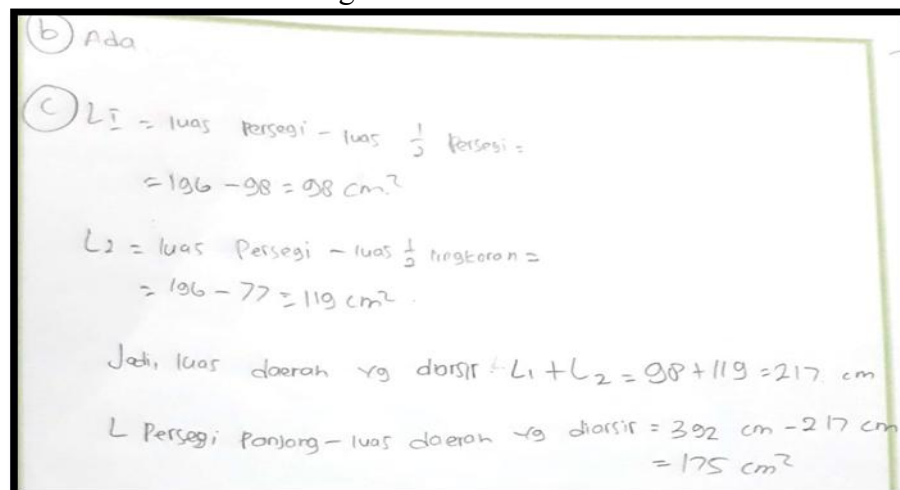 b Ada
c LI = luas persegi - luas 1/2 Persegi =
= 196 - 98 = 98 cm²
L2 = luas Persegi - luas 1/2 lingkaran =
= 196 - 77 = 119 cm².
Jadi, luas daerah yg diarsir : L₁ + L₂ = 98 + 119 = 217 cm
L Persegi Panjang - luas daerah yg diarsir = 392 cm - 217 cm
= 175 cm²